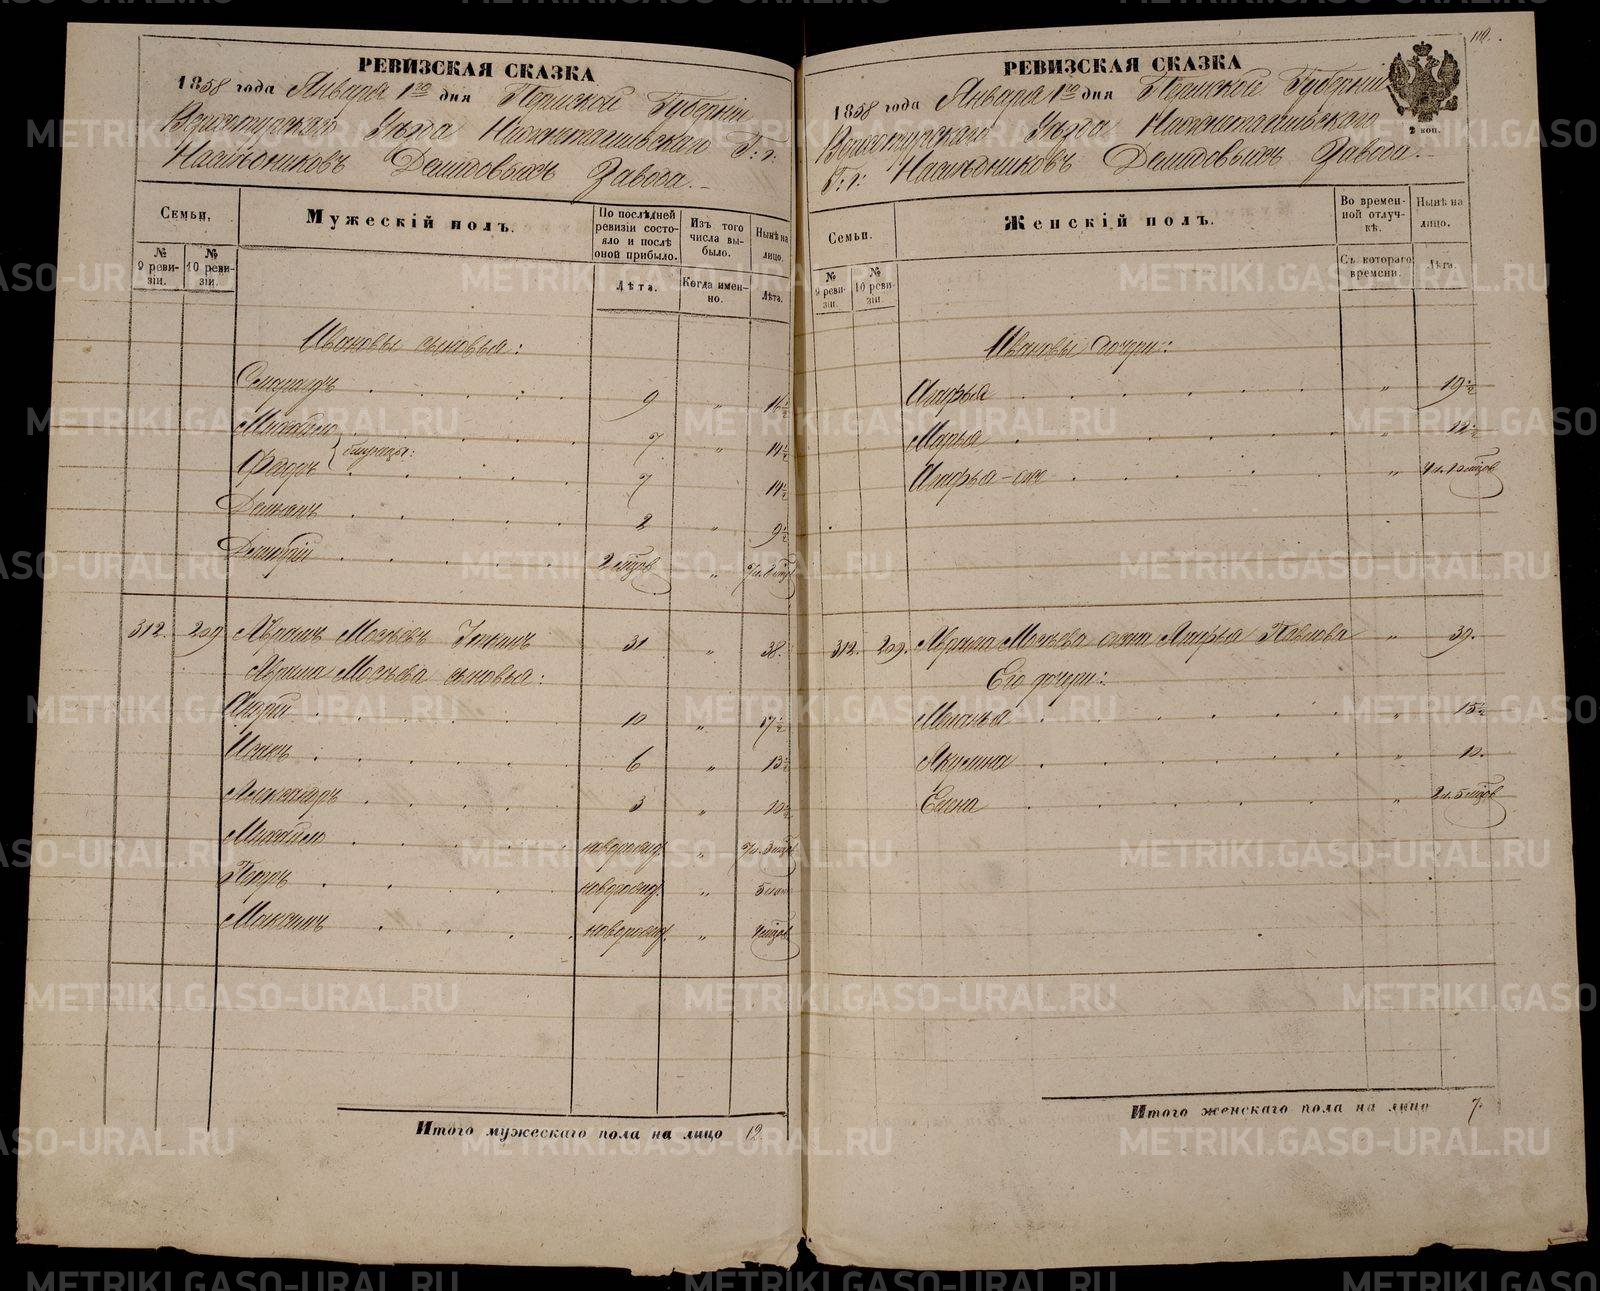 РЕВИЗСКАЯ СКАЗКА
1858 года Января 1го дня Пермской Губерніи
Верхотурскаго Уѣзда Нижнетагильскаго Г: г:
Наслѣдниковъ Демидовыхъ Завода.
Семьи.
№ 9 ревизіи.
№ 10 ревизіи.
Мужескій полъ.
По послѣдней ревизіи состояло и послѣ оной прибыло.
Лѣта.
Изъ того числа выбыло.
Когда именно.
Нынѣ на лицо.
Лѣта.
Ивановы сыновья:
9 " 16½
Михайло 7 " 14½
близнецы:
Федоръ 7 " 14½
Демьянъ 2 " 9½
Дмитрій 2 мцов "
312. 209 Абрамъ Мосѣевъ 31 " 38.
Абрама Мосѣева сыновья:
Андрей 10 " 17½
Исакъ 6 " 13½
Александръ 3 " 10½
Михайло новорожд. "
Петръ новорожд. " 5
Максимъ новорожд. " 4 мцов
Итого мужескаго пола на лицо 12.
110.
РЕВИЗСКАЯ СКАЗКА
2 коп.
1858 года Января 1го дня Пермской Губерніи
Верхотурскаго Уѣзда Нижнетагильскаго
Г: г: Наслѣдниковъ Демидовыхъ Завода.
Семьи.
№ 9 ревизіи.
№ 10 ревизіи.
Женскій полъ.
Во временной отлучкѣ.
Съ котораго времени.
Нынѣ на лицо.
Лѣта.
Ивановы дочери:
Агафья " 19½
Марья " 12½
Агафья "
312. 209. Абрама Мосѣева жена Агафья Павлова " 39.
Его дочери:
Маланья " 15½
Акулина " 10.
Елена " 2 л. 5 мцов
Итого женскаго пола на лицо 7.
METRIKI.GASO-URAL.RU